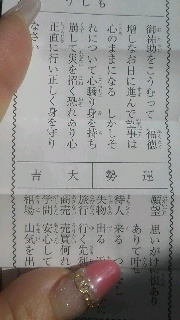 もしり
御佑助をこうむって 福徳
増しなお日に進んで萬事は
心のままになる しかしそ
れについて心驕り身を持ち
崩して災を招く恐れあり心
正直に行い正しく身を守り
なさい
運勢 大吉
願望 思いがけ
ありて叶
待人 来る つ
失物 出る
旅行 行く先
商売 売買何れ
学問 安心して
相場 山気を出